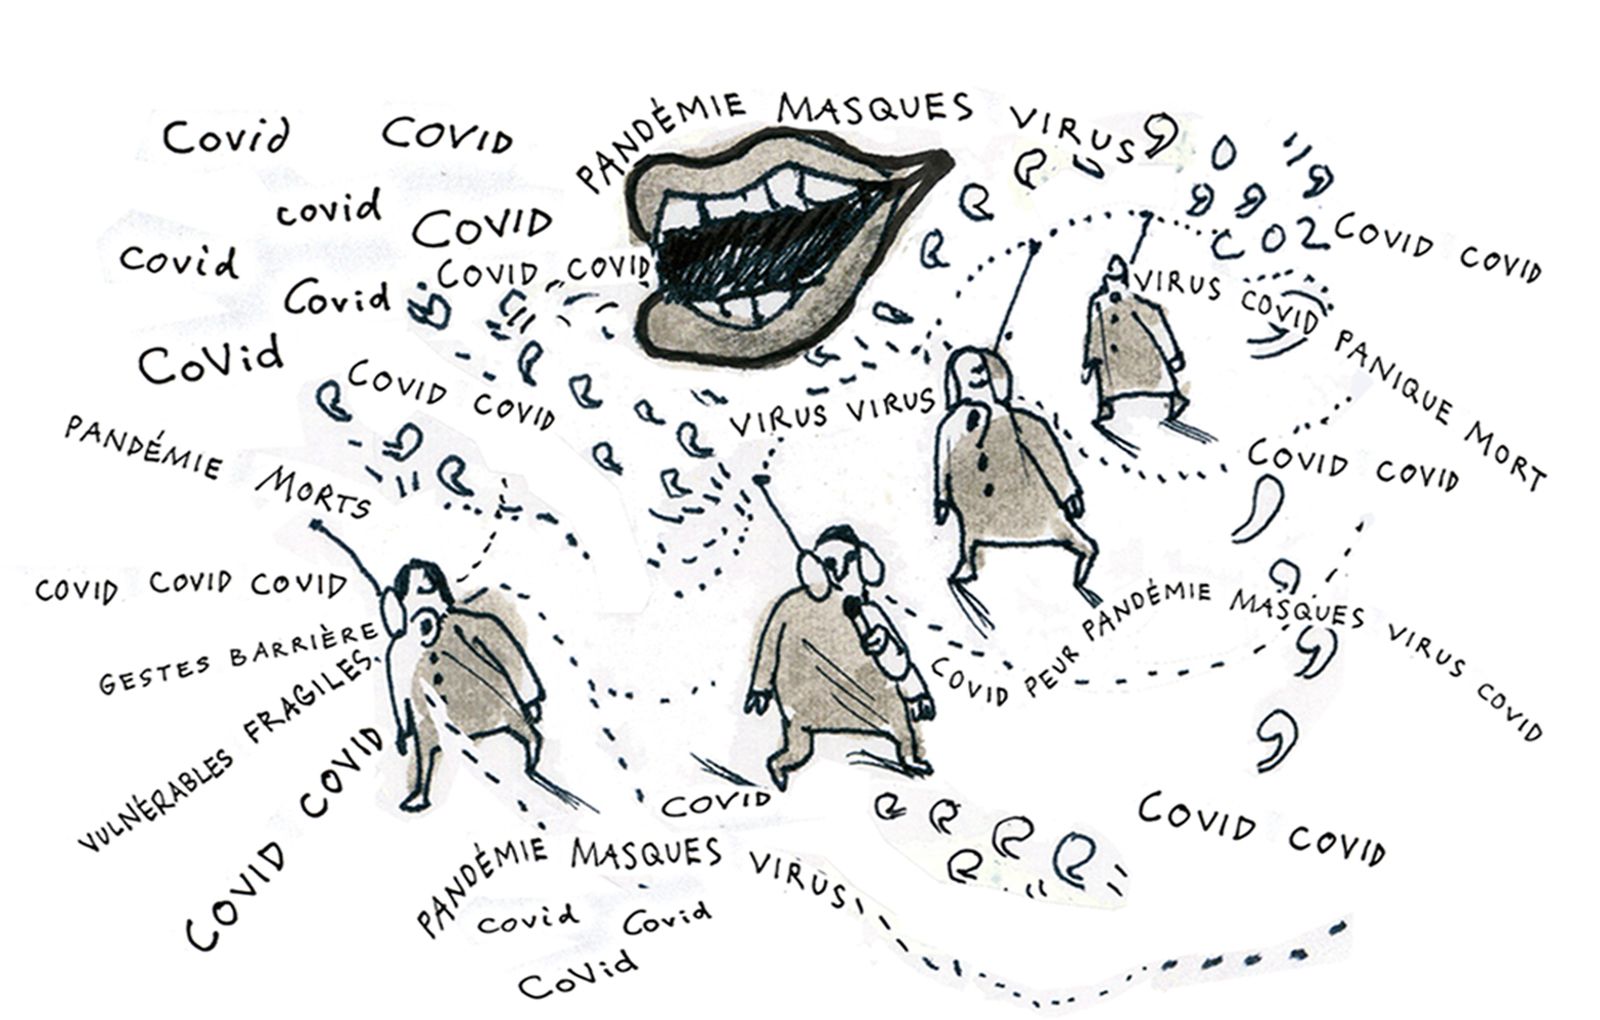 PANDÉMIE MASQUES VIRUS
Covid COVID
covid COVID
CO2 COVID COVID
covid COVID COVID
VIRUS COVID
Covid
PANIQUE MORT
CoVid
COVID COVID
VIRUS VIRUS
PANDÉMIE MORTS
COVID COVID
COVID COVID COVID
GESTES BARRIÈRE
VULNÉRABLES FRAGILES
COVID COVID
COVID PEUR PANDÉMIE MASQUES VIRUS COVID
COVID
COVID COVID
PANDÉMIE MASQUES VIRUS
Covid Covid
CoVid